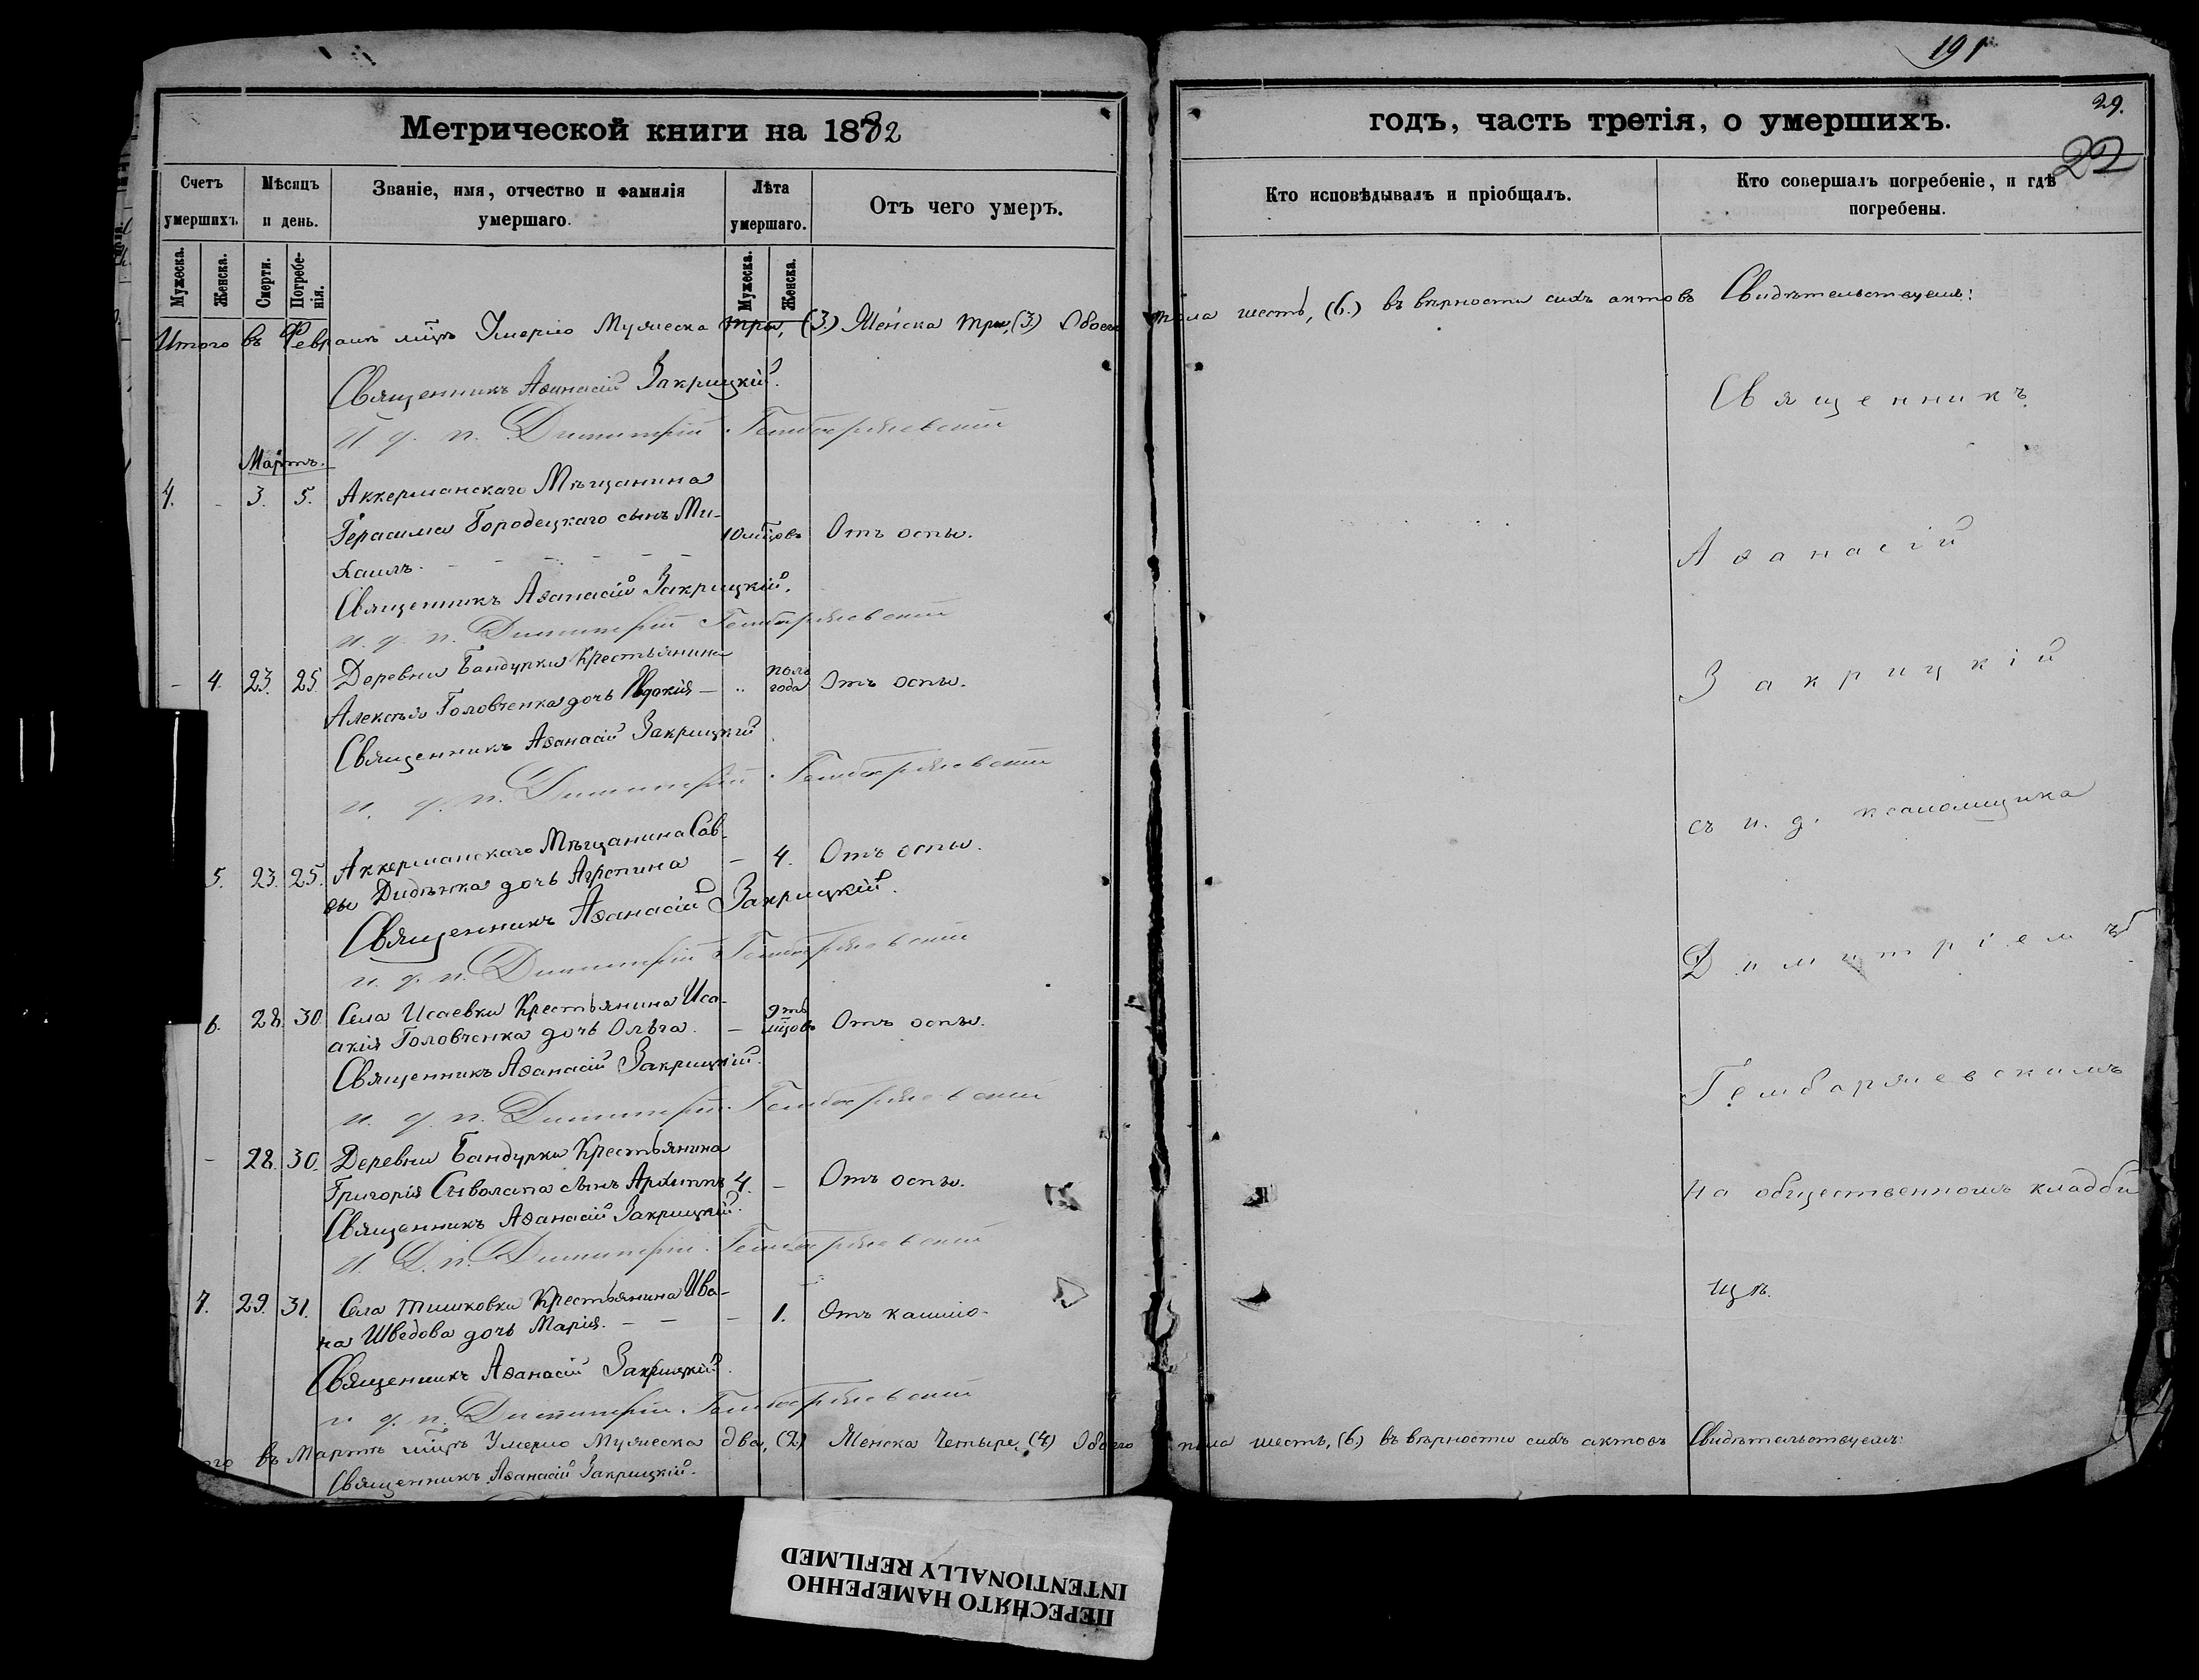 191
29.
22
Метрической книги на 1882
годъ, часть третія, о умершихъ.
Счетъ умершихъ.
Мѣсяцъ и день.
Званіе, имя, отчество и фамилія умершаго.
Лѣта умершаго.
Отъ чего умеръ.
Кто исповѣдывалъ и пріобщалъ.
Кто совершалъ погребеніе, и гдѣ погребены.
Мужеска.
Женска.
Смерти.
Погребенія.
Мужеска.
Женска.
Итого въ Февралѣ мцѣ Умерло Мужеска три, (3.) Женска три, (3.) Обоего пола шесть, (6.) въ вѣрности сихъ актовъ Свидѣтельствуемъ:
Священникъ Аѳанасій Закрицкій.
и. д. п. Димитрій Гембаржевскій
Мартъ.
4. - 3. 5. Аккерманскаго Мѣщанина
Герасима Городецкаго сынъ Ми-
хаилъ. 10 мцовъ Отъ оспы.
Священникъ Аѳанасій Закрицкій.
и. д. п. Димитрій Гембаржевскій
- 4. 23. 25. Деревни Бандурки Крестьянина
Алексѣя Головченка дочь Евдокія - полъ года Отъ оспы.
Священникъ Аѳанасій Закрицкій
и. д. п. Димитрій Гембаржевскій
5. 23. 25. Аккерманскаго Мѣщанина Сав-
вы Дидѣнка дочь Агрепина - 4. Отъ оспы.
Священникъ Аѳанасій Закрицкій.
и. д. п. Димитрій Гембаржевскій
6. 28. 30 Села Исаевки Крестьянина Иса-
акія Головченка дочь Ольга. - 9ть мцовъ Отъ оспы.
Священникъ Аѳанасій Закрицкій.
и. д. п. Димитрій Гембаржевскій
- 28. 30. Деревни Бандурки Крестьянина
Григорія Сыволапа сынъ Архиппъ 4. - Отъ оспы.
Священникъ Аѳанасій Закрицкій.
и. д. п. Димитрій Гембаржевскій
7. 29. 31. Села Тишковки Крестьянина Ива-
на Шведова дочь Марія. - - - 1. Отъ кашлю.
Священникъ Аѳанасій Закрицкій.
и. д. п. Димитрій Гембаржевскій
ого въ Мартѣ мцѣ Умерло Мужеска два, (2) Женска Четыре, (4) Обоего пола шесть, (6.) въ вѣрности сихъ актовъ Свидѣтельствуемъ:
Священникъ Аѳанасій Закрицкій.
Священникъ
Аѳанасій
Закрицкій
съ и. д. псаломщика
Димитріемъ
Гембаржевскимъ
На общественномъ кладби
щѣ.
ПЕРЕСНЯТО НАМЕРЕННО
INTENTIONALLY REFILMED